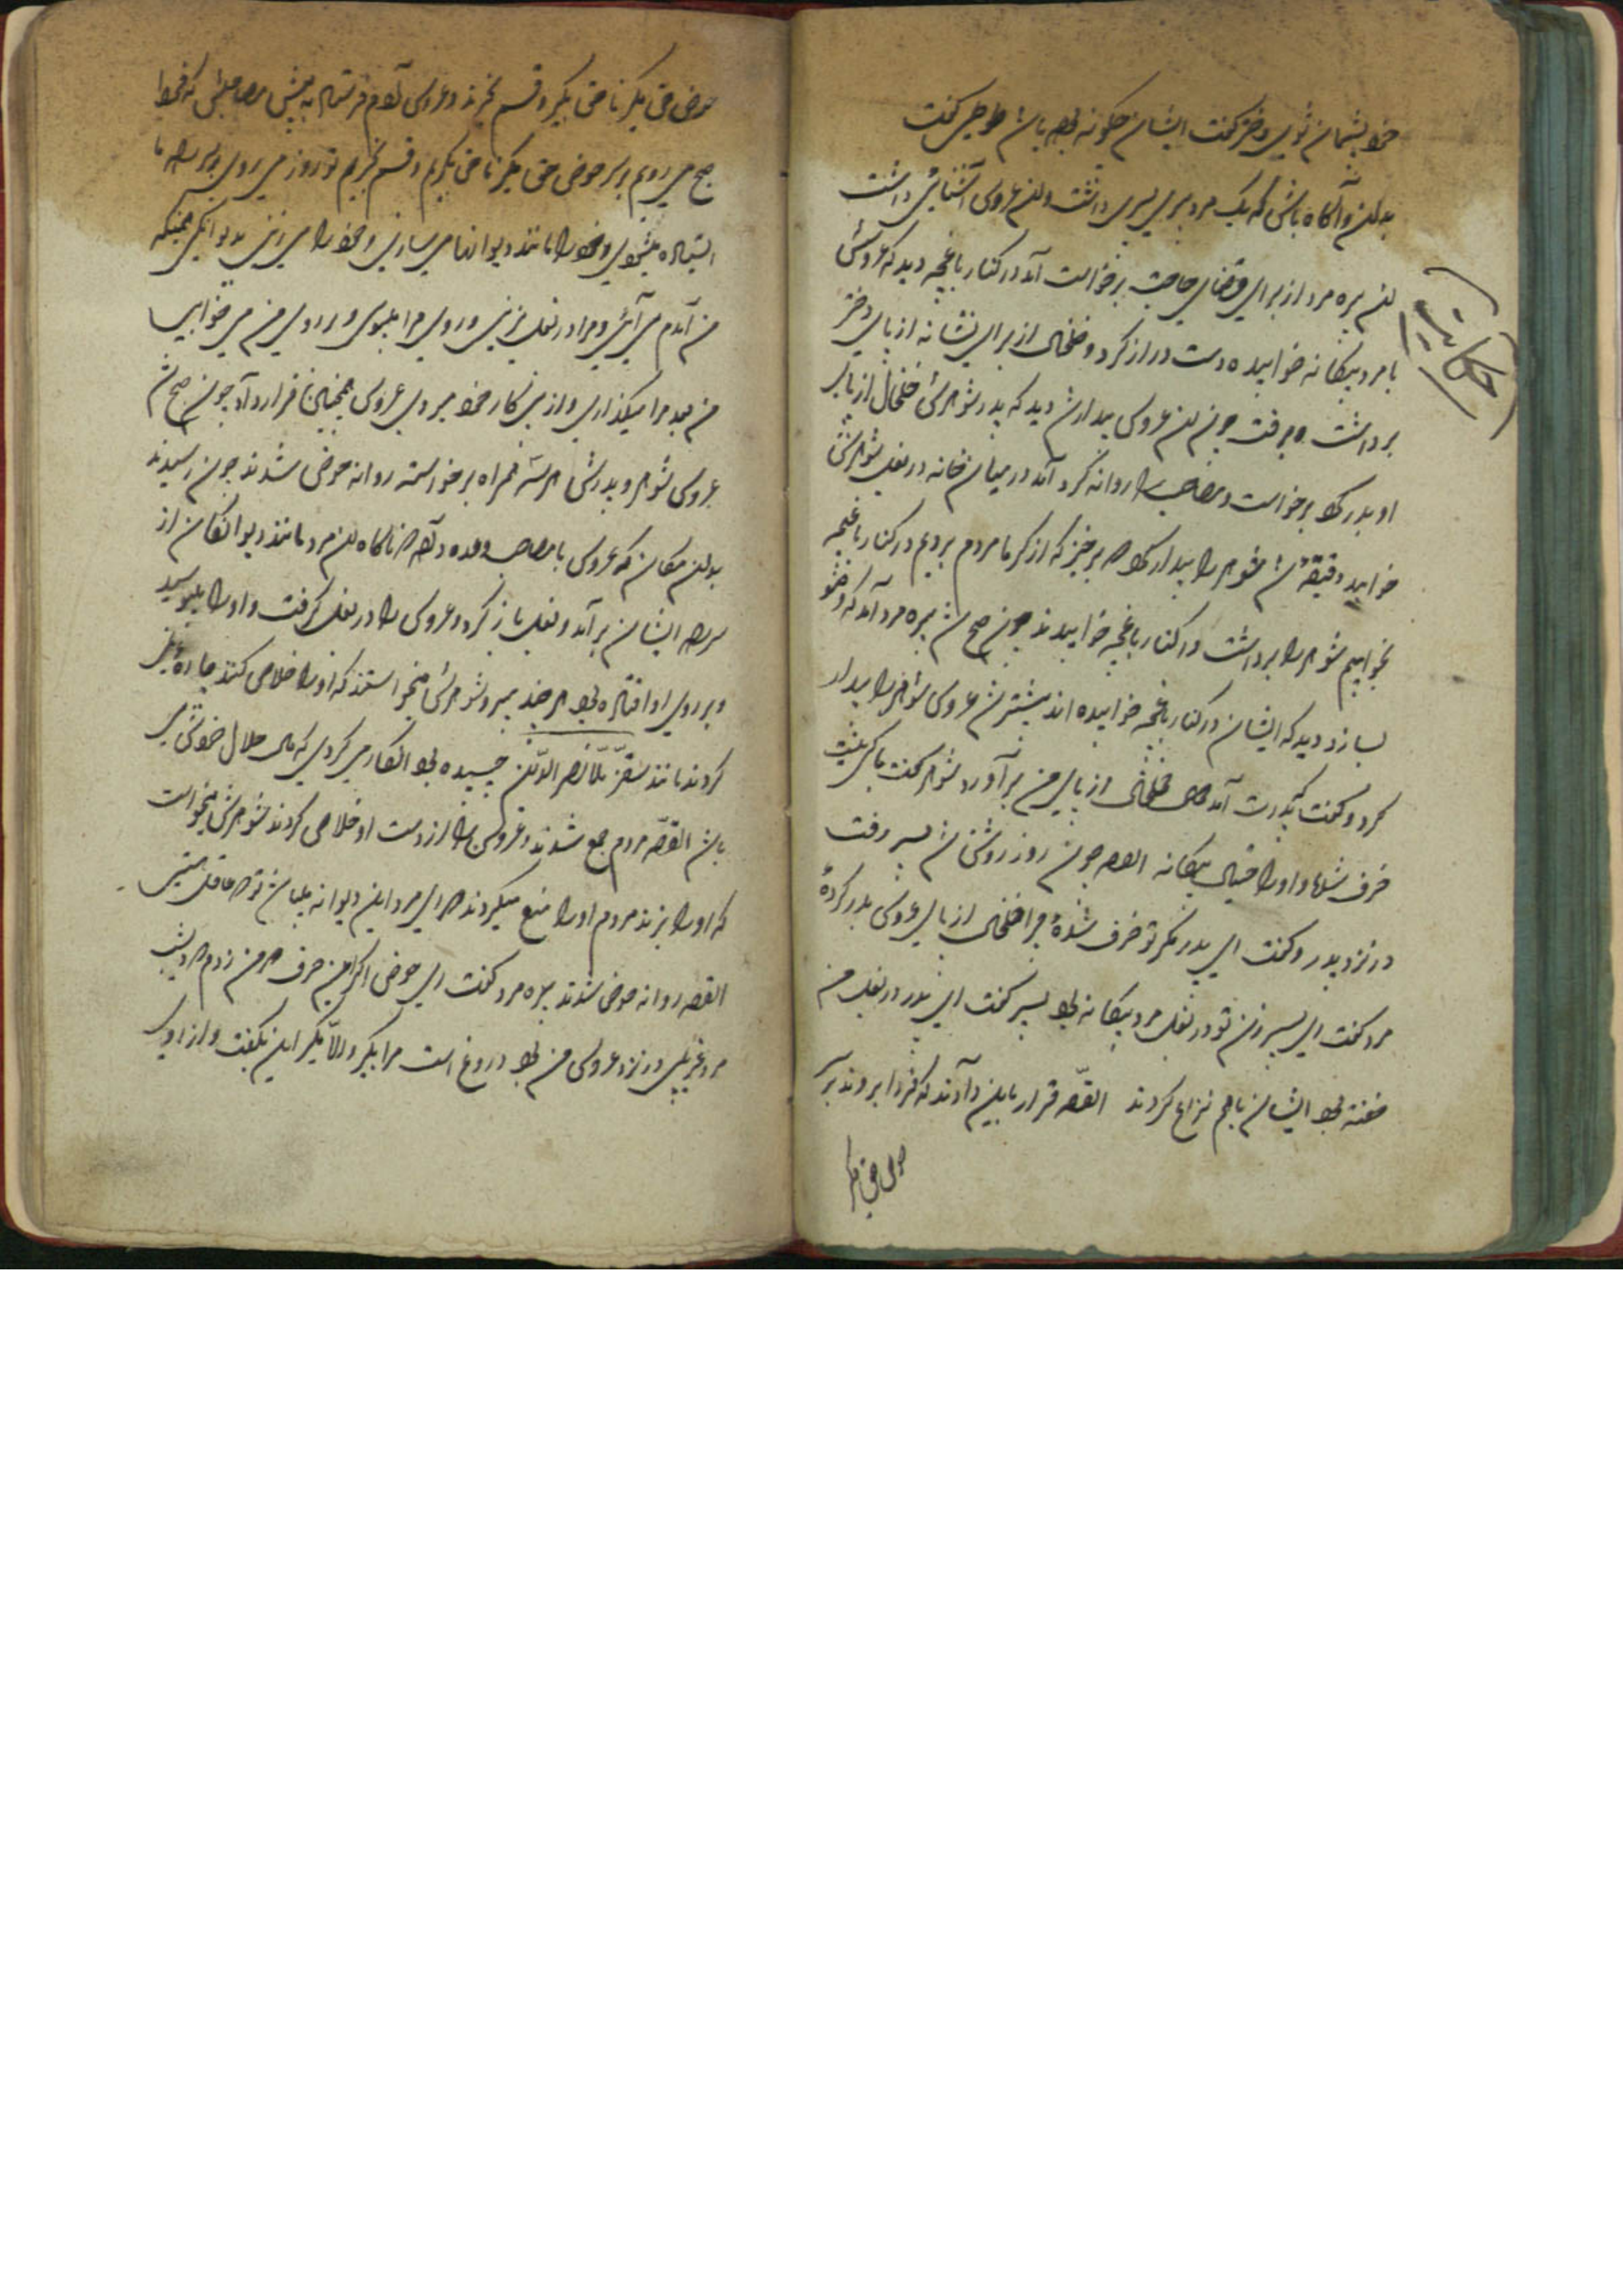 خود پشیمان شوی دختر گفت ایشان چگونه بود باشد طوطی گفت
بدان و آگاه باش که یک مرد پیری پسری داشت و آن عروس آشنائی داشت
حکایت
آن پیره مرد از برای قضای حاجت برخواست آمد در کنار باغچه دید که عروسش
با مرد بیگانه خوابیده دست دراز کرد و خلخال از برای نشانه از پای دختر
برداشت و برفت چون آن عروس بیدار شد دید که پدر شوهرش خلخال از پای
او بدر کرد برخواست و مصاحب را روانه کرد آمد در میان خانه در بغل شوهرش
خوابید دقیقه شد شوهر را بیدار کرد که برخیز که از گرما مردم برویم در کنار باغچه
بخوابیم شوهر را برداشت در کنار باغچه خوابیدند چون صبح شد پیره مرد آمد که
بسازد دید که ایشان در کنار باغچه خوابیده اند پیشتر شد عروس شوهر را بیدار
کرد و گفت پدرت آمد خلخال از پای من برآورد شوهر گفت
خرف شده و او را خیال بیگانه القصه چون روز روشن شد پسر رفت
در نزد پدر و گفت ای پدر مگر تو خرف شدهٔ چرا خلخال از پای عروس بدر کردهٔ
مرد گفت ای پسر زن تو در بغل مرد بیگانه بود پسر گفت ای پدر در بغل من
خفته بود ایشان باهم نزاع کردند القصّه قرار باین دادند که فردا بروند بر سر
حوض حق بگیر
حوض حق بگیر ناحق بگیر و قسم بخورند و عروس آدم فرستاد به پیش مصاحبش که فردا
صبح می رویم بر سر حوض حق بگیر ناحق بگیر و قسم بخوریم تو روز می روی بر سر راه ما
ایستاده میشوی و خود را مانند دیوانها می سازی و خود را می زنی بدیوانگی همینکه
من آمدم می آئی و مرا در بغل بزنی و روی مرا ببوسی و بر روی من می خوابی
من بعد مرا میگذاری و از پی کار خود میروی عروس همچنان قرار داد چون صبح شد
عروس شوهر و پدرش هر سه همراه برخواسته روانه حوض شدند چون رسیدند
بدان مکان که عروس با مصاحب وعده داده ناگاه آن مرد مانند دیوانگان از
سر راه ایشان برآمد و بغل باز کرد و عروس را در بغل گرفت و او را ببوسید
و بر روی او افتاده بود هر چند پدر و شوهرش میخواستند که او را خلاص کنند چاره
کردند مانند سقز ملّا نصر الدّین چسپیده بود انکار می کردی که مال حلال خودش
باشد القصّه مردم جمع شدند و عروس را از دست او خلاص کردند شوهرش میخواست
که او را بزند مردم او را منع میکردند که ای مرد این دیوانه میباشد تو که عاقل هستی
القصه روانه حوض شدند پیره مرد گفت ای حوض اگر این حرف که من زدم که دیشب
مرد غریبی در نزد عروس من بود دروغ است مرا بگیر والّا نگیر این بگفت و از او